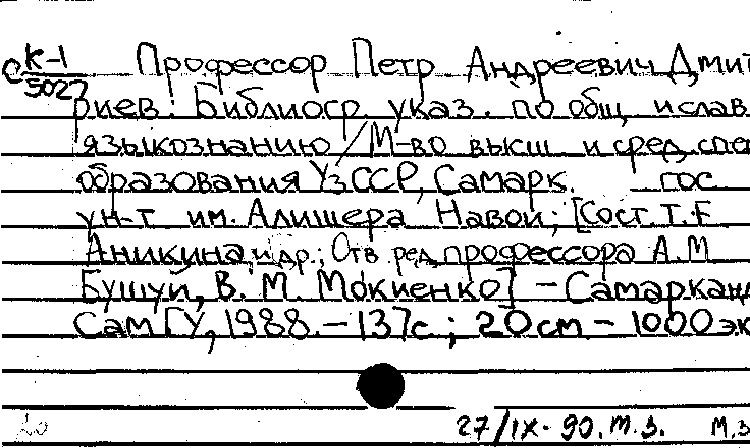 С К-1 Профессор Петр Андреевич Дмит
5027 риев: Библиогр. указ. по общ. и слав.
языкознанию / М-во высш. и сред. спец
образования УзССР, Самарк. гос.
ун-т им. Алишера Навои; [Сост. Т. Г.
Аникина и др.; Отв. ред. профессора А. М.
Бушуй, В. М. Мокиенко] – Самарканд
СамГУ, 1988. – 137с.; 20 см – 1000 эк
20 27/IX-90. т.з. М.З